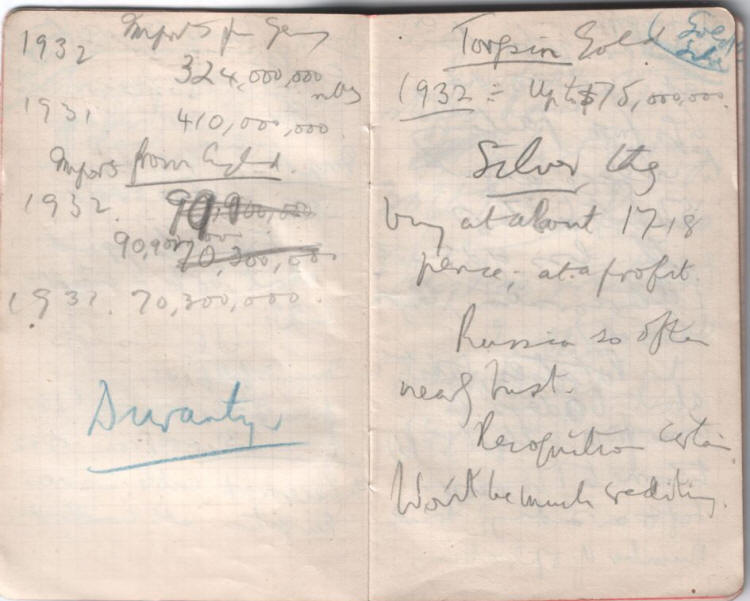 1932 Imports from Germany
324,000,000
mks
1931
410,000,000
Imports from England.
1932. 90,900,000
90,900,000
70,300,000
1931. 70,300,000.
Duranty.
Torgsin Gold
Gold
Silver
1932 = Up to $75,000,000.
Silver they
buy at about 17-18
pence, at a profit.
Russia so often
nearly bust.
Recognition certain.
Won't be much crediting.